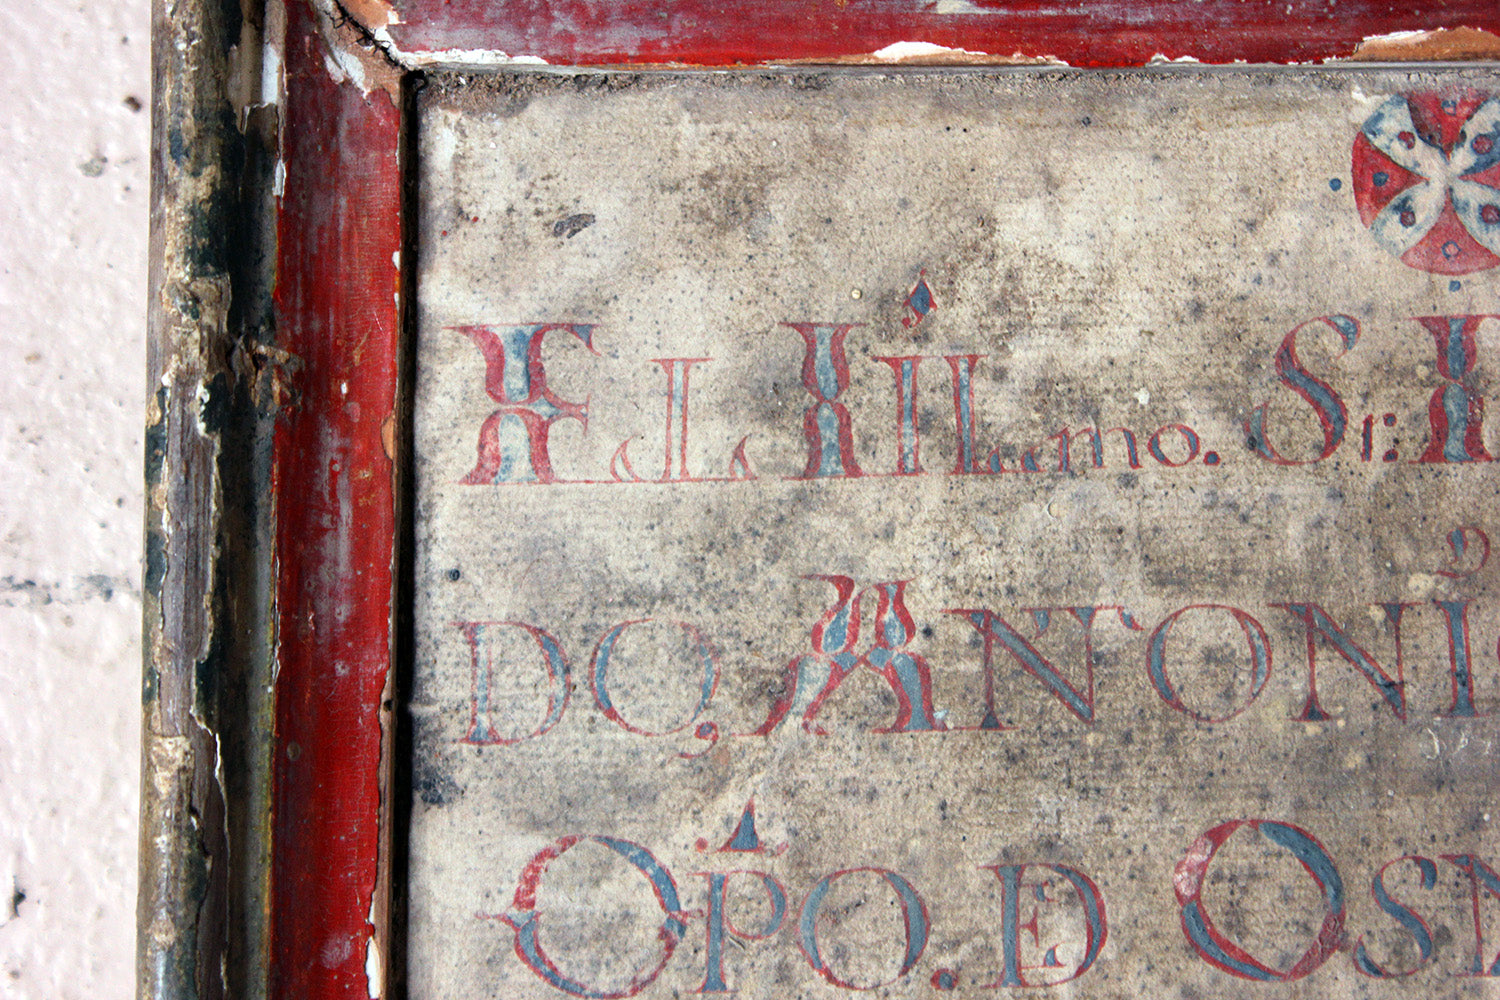 EL ILLmo. Sr.
DO, ANTONI
OPO. DE OS